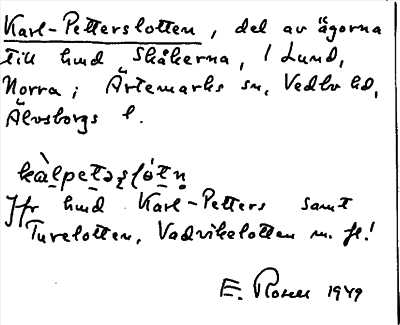 Karl-Petterslotten, del av ägorna
till hmd Skåkerna, i Lund,
Norra; Ärtemarks sn, Vedbo hd,
Älvsborgs l.
kàlpetəṣlótṇ
Jfr hmd Karl-Petters samt
Turelotten, Vadvikelotten m. fl.!
E. Rosen 1949